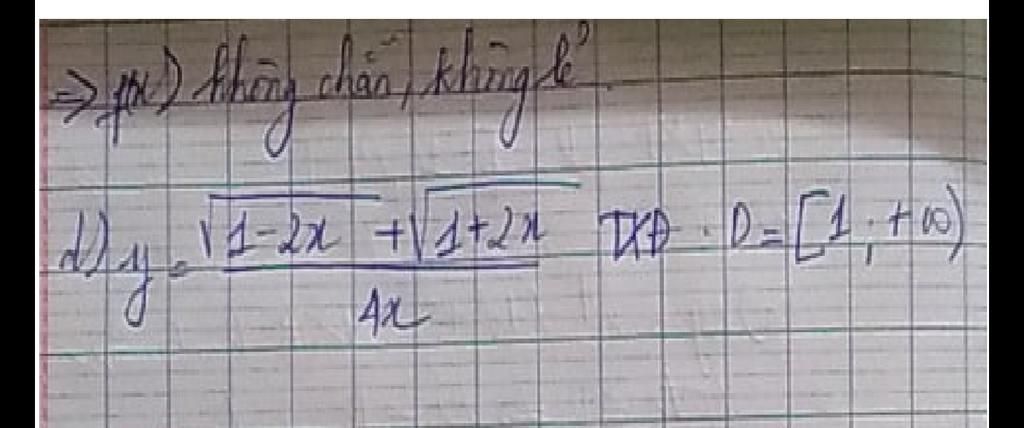 => f(x) không chẵn, không lẻ.
d) y = (√(1-2x) + √(1+2x)) / 4x TXĐ. D = [1; +∞)